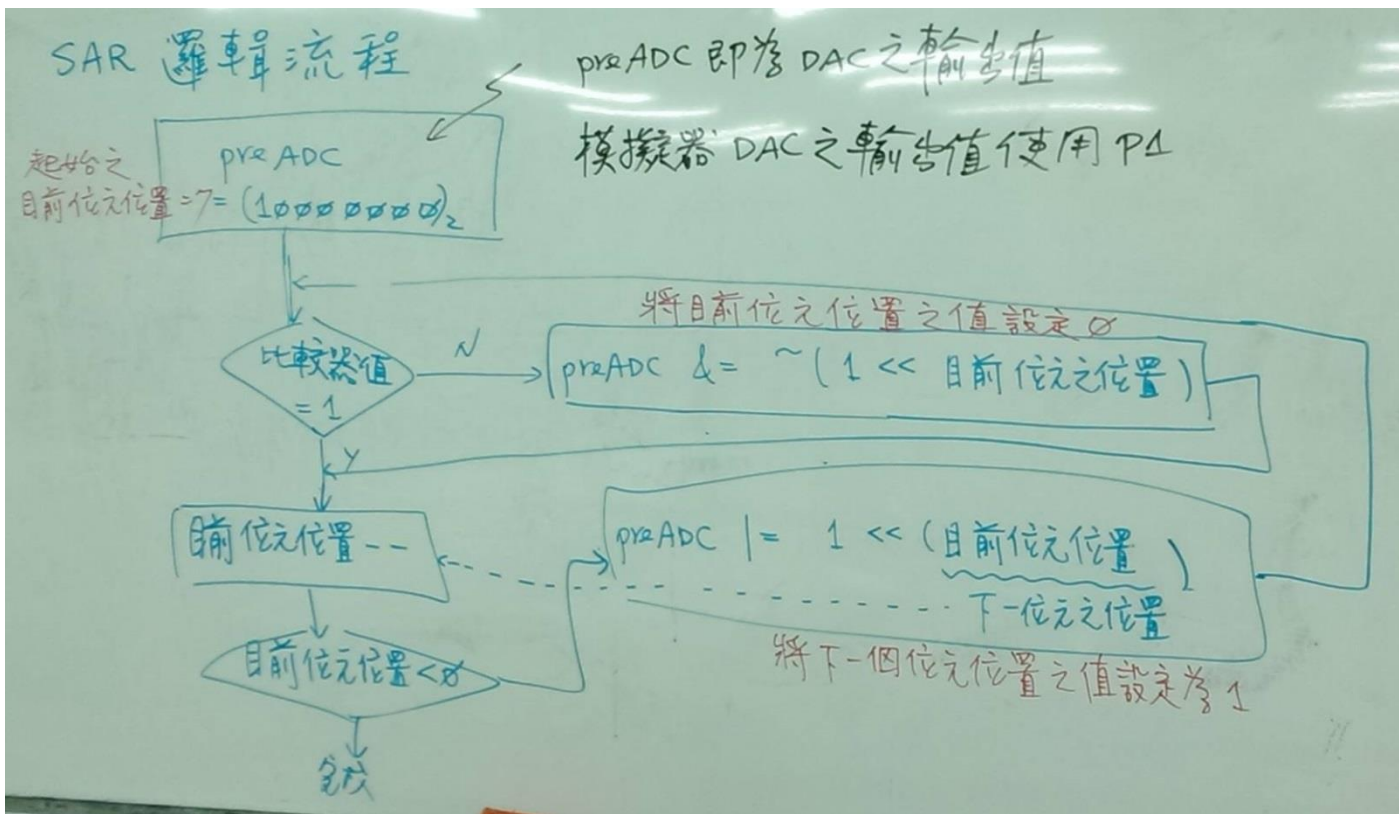 SAR 邏輯流程
preADC 即為 DAC之輸出值
模擬器 DAC之輸出值使用 P1
起始之
目前位元位置=7=
preADC
(1000 0000)₂
比較器值
= 1
N
將目前位元位置之值設定0
preADC &= ~(1 << 目前位元之位置)
Y
目前位元位置--
preADC |= 1 << (目前位元位置)
下一位元之位置
目前位元位置<0
將下一個位元位置之值設定為1
完成